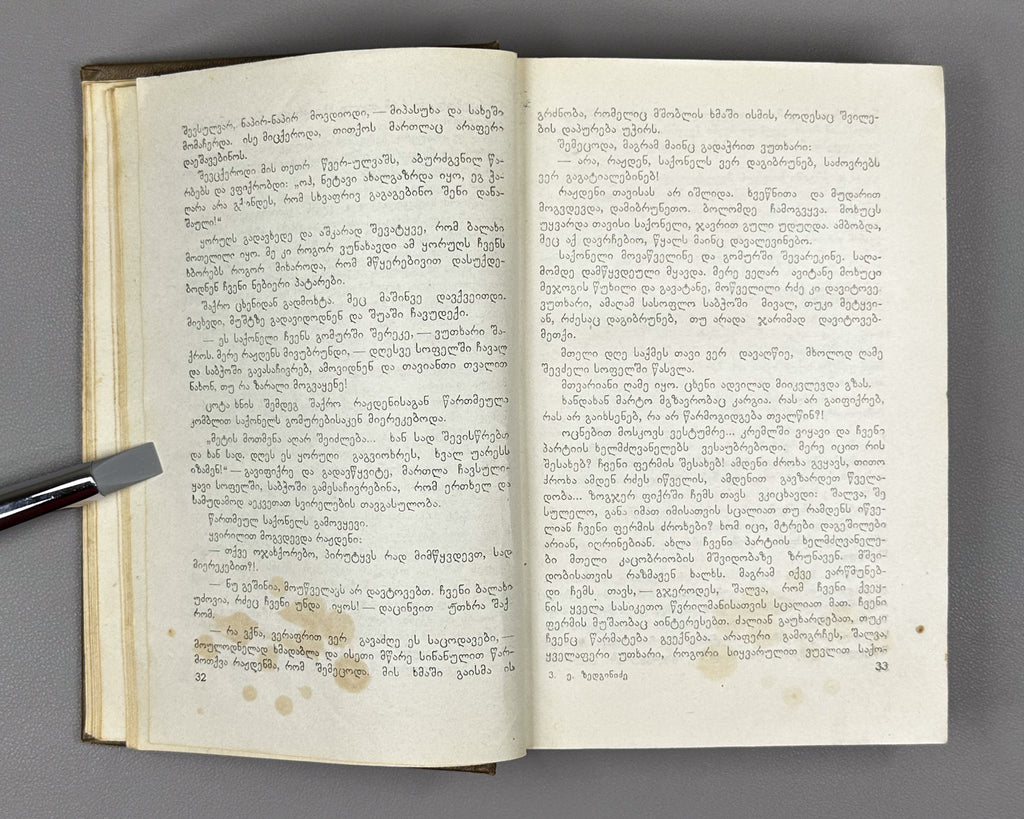 შევსულვარ, ნაპირ-ნაპირ მოვდიოდი, — მიპასუხა და სახეში
მომაჩერდა. ისე მიცქეროდა, თითქოს მართლაც არაფერი
დაეშავებინოს.
შევცქეროდი მის თეთრ წვერ-ულვაშს, აბურძგვნილ წა-
რბებს და ვფიქრობდი: „ოჰ, ნეტავი ახალგაზრდა იყო, ეგ ჭა-
ღარა არა გქონდეს, რომ სხვაფრივ გაგაგებინო შენი დანა-
შაული!“
ყორუღს გადავხედე და აშკარად შევატყვე, რომ ბალახი
მოთელილი იყო. მე კი როგორ ვუნახავდი ამ ყორუღს ჩვენს
ხბორებს როგორ მიხაროდა, რომ მწყერებივით დასუქდე-
ბოდნენ ჩვენი ნებიერი პატარები.
შაქრო ცხენიდან გადმოხტა. მეც მაშინვე დავქვეითდი.
მივხვდი, მუშტზე გადავიდოდნენ და შუაში ჩავუდექი.
— ეს საქონელი ჩვენს გომურში შერეკე, — ვუთხარი შა-
ქროს. მერე რაჟდენს მივუბრუნდი, — დღესვე სოფელში ჩავალ
და საბჭოში გავასაჩივრებ, ამოვიდნენ და თავიანთი თვალით
ნახონ, თუ რა ზარალი მოგვაყენე!
ცოტა ხნის შემდეგ შაქრო რაჟდენისაგან წართმეულ
კომბლით საქონელს გომურებისაკენ მიერეკებოდა.
„მეტის მოთმენა აღარ შეიძლება... ხან სად შევისწრებთ
და ხან სად, დღეს ეს ყორუღი გაგვიოხრეს, ხვალ უარესს
იზამენ!“ — გავიფიქრე და გადავწყვიტე, მართლა ჩავსული-
ყავი სოფელში, საბჭოში გამესაჩივრებინა, რომ ერთხელ და
სამუდამოდ აეკვეთათ სვირელების თავგასულობა.
წართმეულ საქონელს გამოვყევი.
ყვირილით მოგვდევდა რაჟდენი:
— თქვე ოჯახქორებო, პირუტყვს რად მიმწყვდევთ, სად
მიერეკებით?!.
— ნუ გეშინია, მოუწველავს არ დავტოვებთ. ჩვენი ბალახი
უძოვია, რძეც ჩვენი უნდა იყოს! — დაცინვით უთხრა შაქ-
რომ.
— რა ვქნა, ვერაფრით ვერ გავაძღე ეს საცოდავები, —
მოულოდნელად ხმადაბლა და ისეთი მწარე სინანულით წარ-
მოთქვა რაჟდენმა, რომ შემეცოდა. მის ხმაში გაისმა ის
32
გრძნობა, რომელიც მშობლის ხმაში ისმის, როდესაც შვილე-
ბის დაპურება უჭირს.
შემეცოდა, მაგრამ მაინც გადაჭრით ვუთხარი:
— არა, რაჟდენ, საქონელს ვერ დაგიბრუნებ, საძოვრებს
ვერ გაგატიალებინებ!
რაჟდენი თავისას არ იშლიდა. ხვეწნითა და მუდარით
მოგვდევდა, დამიბრუნეთო. ბოლომდე ჩამოგვყვა. მოხუცს
უყვარდა თავისი საქონელი, ჯავრით გული უდუღდა. ამბობდა,
მეც აქ დავრჩებიო, წყალს მაინც დავალევინებო.
საქონელი მოვაწველინე და გომურში შევარეკინე. საღა-
მომდე დამწყვდეული მყავდა. მერე ვეღარ ავიტანე მოხუცი
მეჯოგის წუხილი და გავატანე, მოწველილი რძე კი დავიტოვე.
ვუთხარი, ამაღამ სასოფლო საბჭოში მივალ, თუკი მეტყვი-
ან, რძესაც დაგიბრუნებ, თუ არადა ჯარიმად დავიტოვებ-
მეთქი.
მთელი დღე საქმეს თავი ვერ დავაღწიე, მხოლოდ ღამე
შევძელი სოფელში წასვლა.
მთვარიანი ღამე იყო. ცხენი ადვილად მიიკვლევდა გზას.
ხანდახან მარტო მგზავრობაც კარგია. რას არ გაიფიქრებ,
რას არ გაიხსენებ, რა არ წარმოგიდგება თვალწინ?!
ოცნებით მოსკოვს ვესტუმრე... კრემლში ვიყავი და ჩვენი
პარტიის ხელმძღვანელებს ვესაუბრებოდი. მერე იცით რის
შესახებ? ჩვენი ფერმის შესახებ! ამდენი ძროხა გვყავს, თითო
ძროხა ამდენ რძეს იწველის, ამდენით გავზარდეთ წველა-
დობა... ზოგჯერ ფიქრში ჩემს თავს ვკიცხავდი: შალვა, შე
სულელო, განა იმათ იმისათვის სცალიათ თუ რამდენს იწვე-
ლიან ჩვენი ფერმის ძროხები? ხომ იცი, მტრები დაგეშილები
არიან, იღრინებიან. ახლა ჩვენი პარტიის ხელმძღვანელე-
ბი მთელი კაცობრიობის მშვიდობაზე ზრუნავენ. მშვი-
დობისათვის რაზმავენ ხალხს. მაგრამ იქვე ვარწმუნებ-
დი ჩემს თავს, — გჯეროდეს, შალვა, რომ ჩვენი ქვეყ-
ნის ყველა სასიკეთო წვრილმანისათვის სცალიათ მათ. ჩვენი
ფერმის მუშაობაც აინტერესებთ. ძალიან გაუხარდებათ, თუკი
ჩვენც წარმატება გვექნება. არაფერი გამოგრჩეს, შალვა,
ყველაფერი უთხარი, როგორი სიყვარულით ვუვლით საქო-
3. ე. ზედგინიძე
33